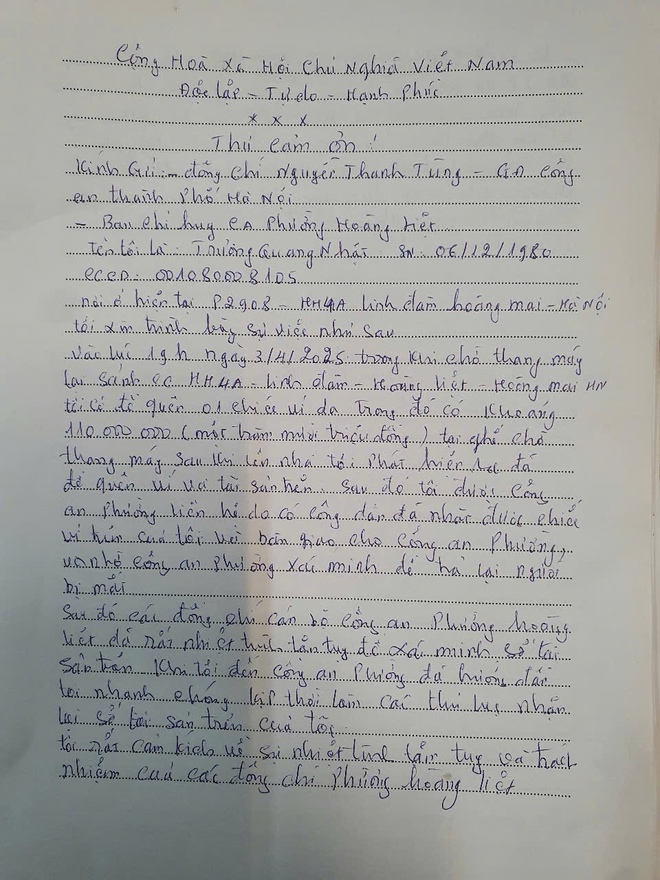 Cộng Hoà Xã Hội Chủ Nghĩa Việt Nam
Độc lập - Tự do - Hạnh Phúc
* * *
Thư cảm ơn :
Kính Gửi - đồng chí Nguyễn Thanh Tùng - GĐ công
an thành phố Hà Nội
- Ban chỉ huy CA Phường Hoàng Liệt
Tên tôi là : Trương Quang Nhật SN: 06/12/1980
CCCD: 001080008105
nơi ở hiện tại P2908 - HH4A linh đàm hoàng mai - Hà Nội
tôi xin trình bày sự việc như sau
vào lúc 19h ngày 3/4/2025 trong khi chờ thang máy
tại sảnh CC HH4A - linh đàm - Hoàng liệt - Hoàng mai HN
tôi có để quên 01 chiếc ví da trong đó có khoảng
110.000.000 (một trăm mười triệu đồng) tại ghế chờ
thang máy sau khi lên nhà tôi phát hiện đã
để quên ví và tài sản trên. Sau đó tôi được công
an phường liên hệ do có công dân đã nhặt được chiếc
ví của tôi và bàn giao cho công an Phường,
và nhờ công an phường xác minh để trả lại người
bị mất
Sau đó các đồng chí cán bộ công an Phường hoàng
liệt đã rất nhiệt tình tận tụy để xác minh số tài
sản trên khi tôi đến công an Phường đã hướng dẫn
tôi nhanh chóng kịp thời làm các thủ tục nhận
lại số tài sản trên của tôi
tôi rất cảm kích về sự nhiệt tình tận tụy và trách
nhiệm của các đồng chí Phường hoàng liệt